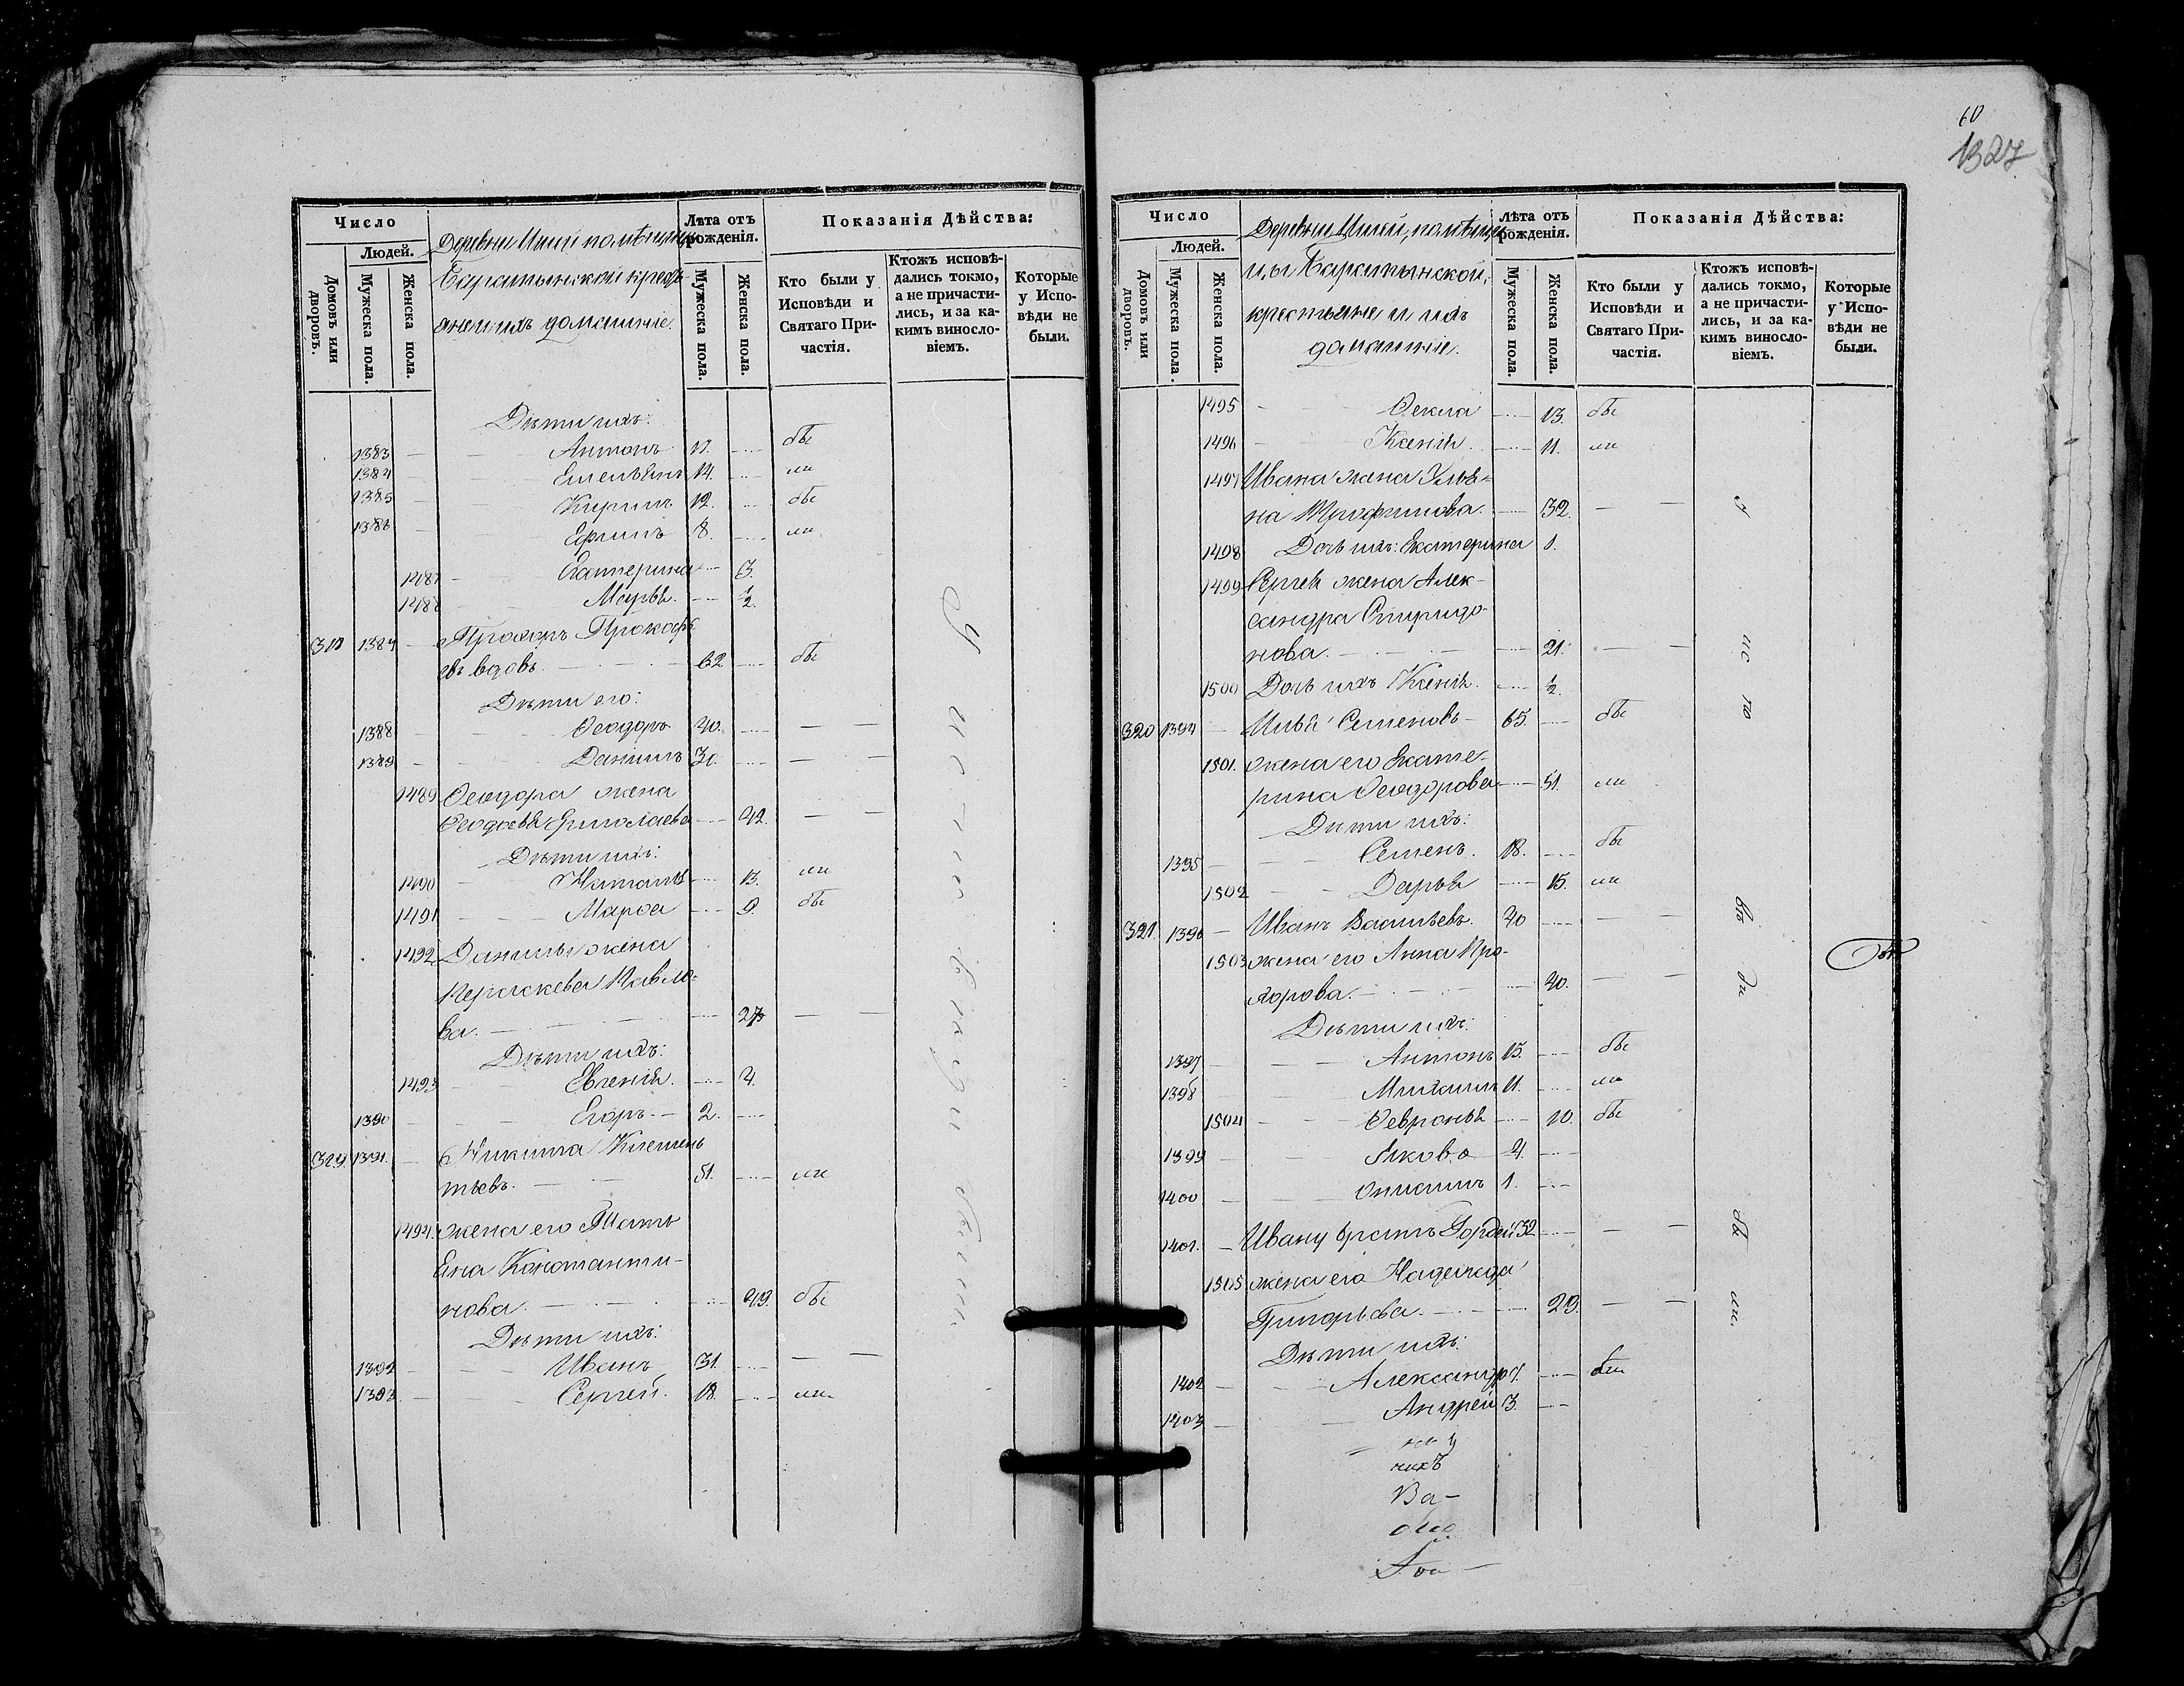 Число
Людей.
Домовъ или дворовъ.
Мужеска пола.
Женска пола.
Деревни помѣщицы
Баратынской кресть-
яне и ихъ домашніе.
Лѣта отъ рожденія.
Мужеска пола.
Женска пола.
Показанія Дѣйства:
Кто были у Исповѣди и Святаго Причастія.
Ктожъ исповѣдались токмо, а не причастились, и за какимъ винословіемъ.
Которые у Исповѣди не были.
Дѣти ихъ:
1383 Антонъ 17. бы
1384 Емельянъ 14. ли
1385 Кирилъ 12. бы
1386 Ефимъ 8. ли
1487 Екатерина 3.
1488 Марья. ½.
318 1387 Прохоръ Прохоро-
въ вдовъ. 62 бы
Дѣти его:
1388 Ѳеодоръ 40.
1389 Данилъ 30.
1489 Ѳеодора жена
Ѳеодосья Ермолаева 42.
Дѣти ихъ:
1490 Наталья 13. ли
1491 Марѳа 9. бы
1492 Данилы жена
Пераскева Павло-
ва. 27
Дѣти ихъ:
1493 Евгенія. 4.
1390 Егоръ 2.
319 1391. Никита Клемен-
тьевъ. 51. ли
1494. жена его Тать-
яна Константи-
нова. 49. бы
Дѣти ихъ:
1392 Иванъ 31.
1393 Сергей. 18. ли
У исповѣди были
60
1327
Число
Людей.
Домовъ или дворовъ.
Мужеска пола.
Женска пола.
Деревни помѣщи-
цы Баратынской,
крестьяне и ихъ
домашніе.
Лѣта отъ рожденія.
Мужеска пола.
Женска пола.
Показанія Дѣйства:
Кто были у Исповѣди и Святаго Причастія.
Ктожъ исповѣдались токмо, а не причастились, и за какимъ винословіемъ.
Которые у Исповѣди не были.
1495 Ѳекла 13. бы
1496 Ксенія 11. ли
1497 Ивана жена Улья-
на Трофимова. 32.
1498 Дочь ихъ: Екатерина 1.
1499 Сергея жена Алек-
сандра Спиридо-
нова. 21.
1500 Дочь ихъ Ксенія. ½.
320 1394 Илья Семеновъ 65. бы
1501. жена его Екате-
рина Ѳеодорова 51. ли
Дѣти ихъ:
1395 Семенъ. 18. бы
1502 Дарья 15. ли
321 1396 Иванъ Васильевъ. 40
1503 жена его Анна Про-
хорова. 40.
Дѣти ихъ:
1397 Антонъ 15. бы
1398 Михаилъ 11. ли
1504 Ѳевронья 10. бы
1399 Яковъ 4.
1400 1.
1401. Ивану братъ Гордей 32
1505 жена его Надежда
Григорьева. 29.
Дѣти ихъ:
1402 Александръ 7.
1403 Андрей 3.
у ис по вѣ ди бы ли.